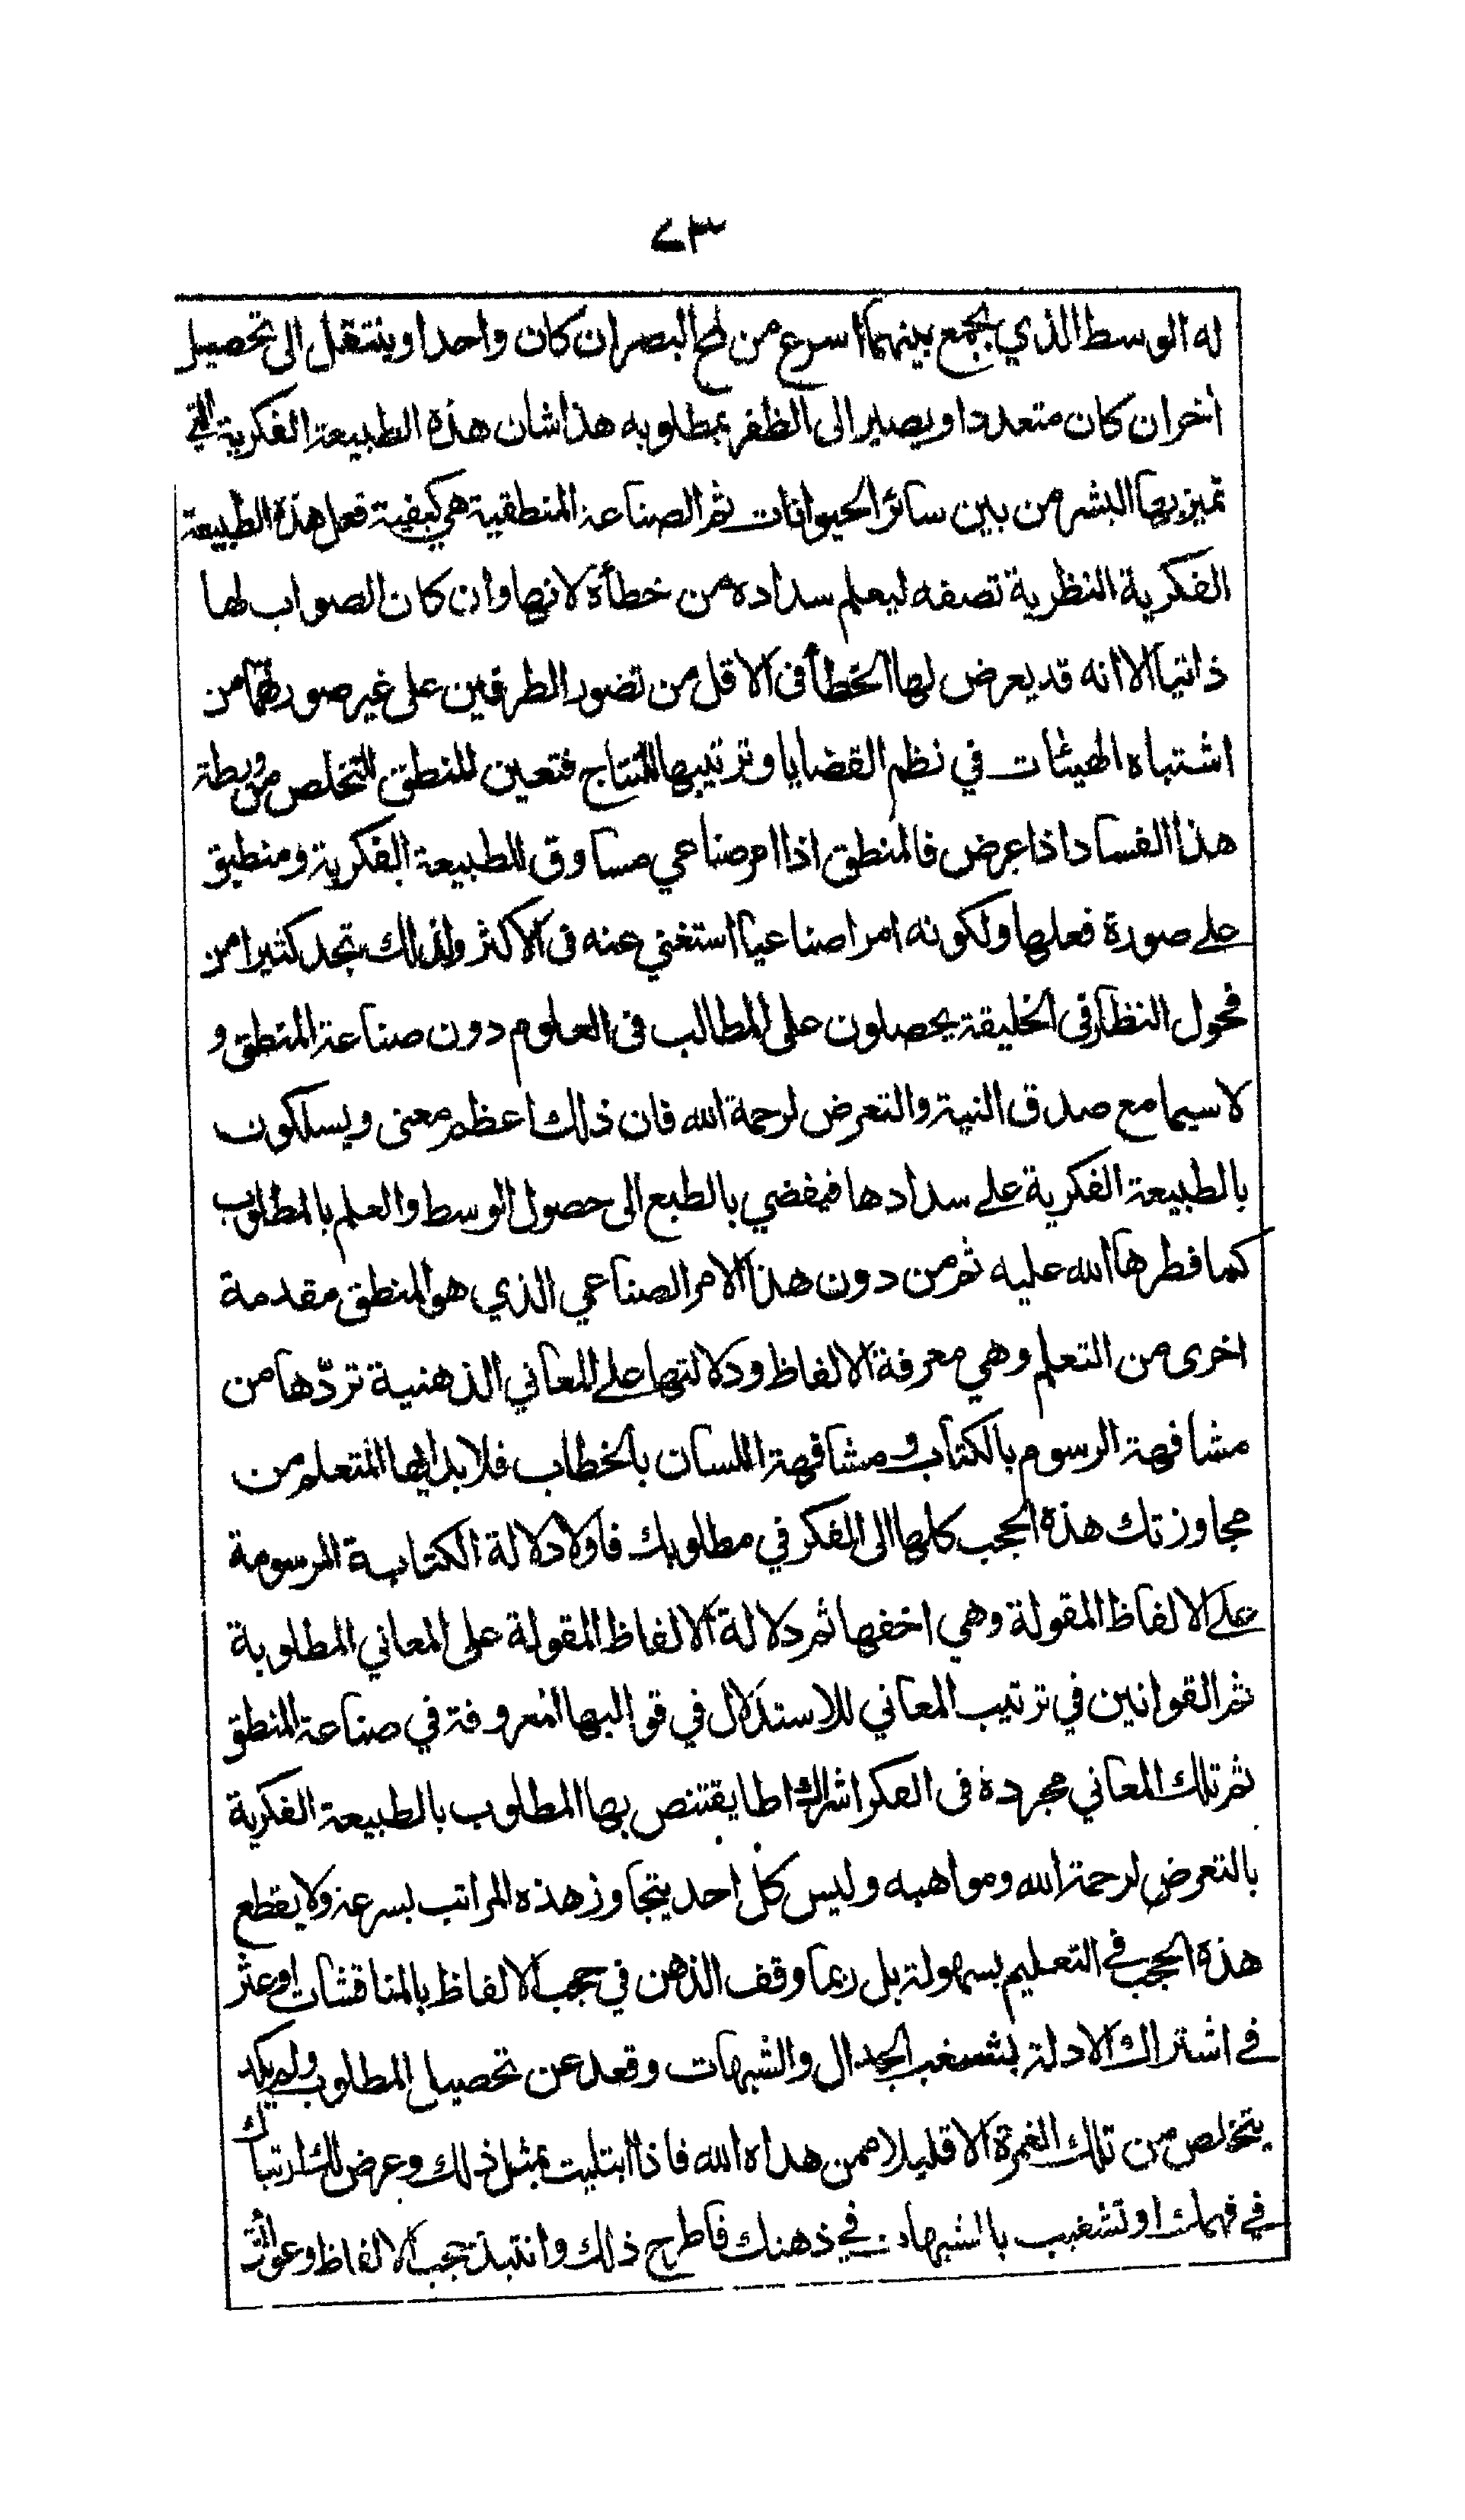 ٧٣
له الوسط الذي يجمع بينهما اسرع من لمح البصر ان كان واحدا وينتقل الى تحصيل
أخر ان كان متعددا ويصير الى الظفر بمطلوبه هذا شان هذه الطبيعة الفكرية التي
تميز بها البشر من بين سائر الحيوانات ثم الصناعة المنطقية هي كيفية فعل هذه الطبيعة
الفكرية النظرية تصفه ليعلم سداده من خطأة لانها وان كان الصواب لها
ذاتيا الا انه قد يعرض لها الخطأ فى الاقل من تصور الطرفين على غير صورتهما من
اشتباه الهيئات في نظم القضايا وترتيبها للنتاج فتعين المنطق للتخلص من ورطة
هذا الفساد اذا عرض فالمنطق اذا امر صناعي مساوق للطبيعة الفكرية ومنطبق
على صورة فعلها ولكونه امرا صناعيا استغني عنه فى الاكثر ولذلك تجد كثيرا من
فحول النظار فى الخليقة يحصلون على المطالب فى العلوم دون صناعة المنطق و
لا سيما مع صدق النية والتعرض لرحمة الله فان ذلك اعظم معنى ويسلكون
بالطبيعة الفكرية على سدادها فيفضي بالطبع الى حصول الوسط والعلم بالمطلوب
كما فطرها الله عليه ثم من دون هذا الامر الصناعي الذي هو المنطق مقدمة
اخرى من التعلم وهي معرفة الالفاظ ودلالتها على المعاني الذهنية تردّها من
مشافهة الرسوم بالكتاب ومشافهة اللسان بالخطاب فلا بد ايها المتعلم من
مجاوزتك هذه الحجب كلها الى الفكر في مطلوبك فاولا دلالة الكتابة المرسومة
على الالفاظ المقولة وهي اخفها ثم دلالة الالفاظ المقولة على المعاني المطلوبة
ثم القوانين في ترتيب المعاني للاستدلال في قوالبها المعروفة في صناعة المنطق
ثم تلك المعاني مجردة فى الفكر اشراك اطا يقتنص بها المطلوب بالطبيعة الفكرية
بالتعرض لرحمة الله ومواهبه وليس كل احد يتجاوز هذه المراتب بسرعة ولا يقطع
هذه الحجب في التعليم بسهولة بل ربما وقف الذهن في حجب الالفاظ بالمناقشات او عثر
في اشتراك الادلة بشغب الجدال والشبهات وقعد عن تحصيل المطلوب ولم يكد
يتخلص من تلك الغمرة الا قليلا ممن هداه الله فاذا ابتليت بمثل ذلك وعرض لك ارتباك
في فهمك او تشغيب بالشبهات في ذهنك فاطرح ذلك وانتبذ حجب الالفاظ وعوائق